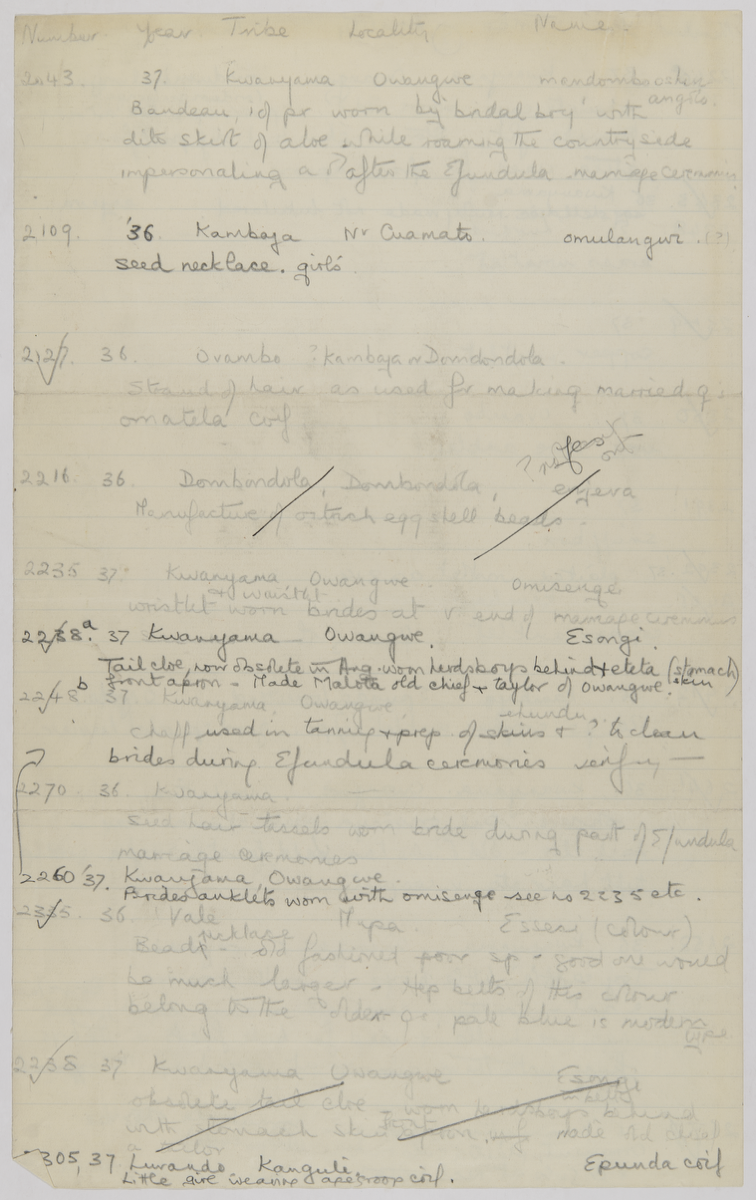 Number. Year Tribe Locality Name.
2043. 37. Kwanyama Owangwe
Bandeau, 1 of pr worn by 'bridal boy' with
ditto skirt of aloe while roaming the countryside
impersonating a ♂ after the Efundula marriage ceremony
2109. '36. Kambaja Nr Cuamato. omulangwi. (?)
seed necklace. girls'.
2127. 36. Ovambo ? Kambaja or Dombondola.
Strand of hair as used for making married ♀'s
omatela coif
2216. 36. Dombondola, Dombondola, enjeva
Manufacture of ostrich egg shell beads.
2235 37. Kwanyama Owangwe. Omisenge
& waistlet
wristlet worn brides at end of marriage ceremonies
2238.a 37 Kwanyama Owangwe. Esongi.
Tail cloe, now obsolete in Ang. worn herdsboys behind + eteta (stomach)
front apron - Made Malota old chief + taylor of Owangwe. skin
2248 b 37 Kwanyama, Owangwe, ehundu,
chaff used in tanning + prep. of skins & ? to clean
brides during Efundula ceremonies verify —
2270 36. Kwanyama.
Seed hair tassels worn bride during part of Efundula
marriage ceremonies
2260 '37. Kwanyama Owangwe.
Brides anklets worn with omisenge see no 2235 etc.
2335. 36. Vale Mupa. Essesi (colour)
necklace
Beads - old fashioned poor sp - good one would
be much larger - Hip belts of this colour
belong to the older ♀ pale blue is modern
type
2238 37 Kwanyama Owangwe Esongi
obsolete tail cloe - worn herdsboys behind
with stomach skin apron, made old chief
a tailor
305, 37 Luvando Kanguli. Epunda coif
Little girl wearing coif.